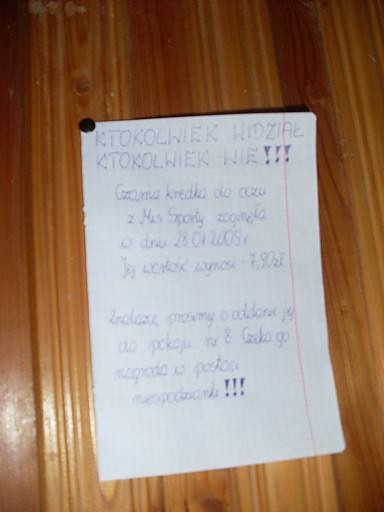 KTOKOLWIEK WIDZIAŁ
KTOKOLWIEK WIE!!!
Czarna kredka do oczu
z Mis Sporty zaginęła
w dniu 28.01.2009r
Jej wartość wynosi -7,90zł
Znalazcę prosimy o oddanie jej
do pokoju nr 8. Czeka go
nagroda w postaci
niespodzianki!!!